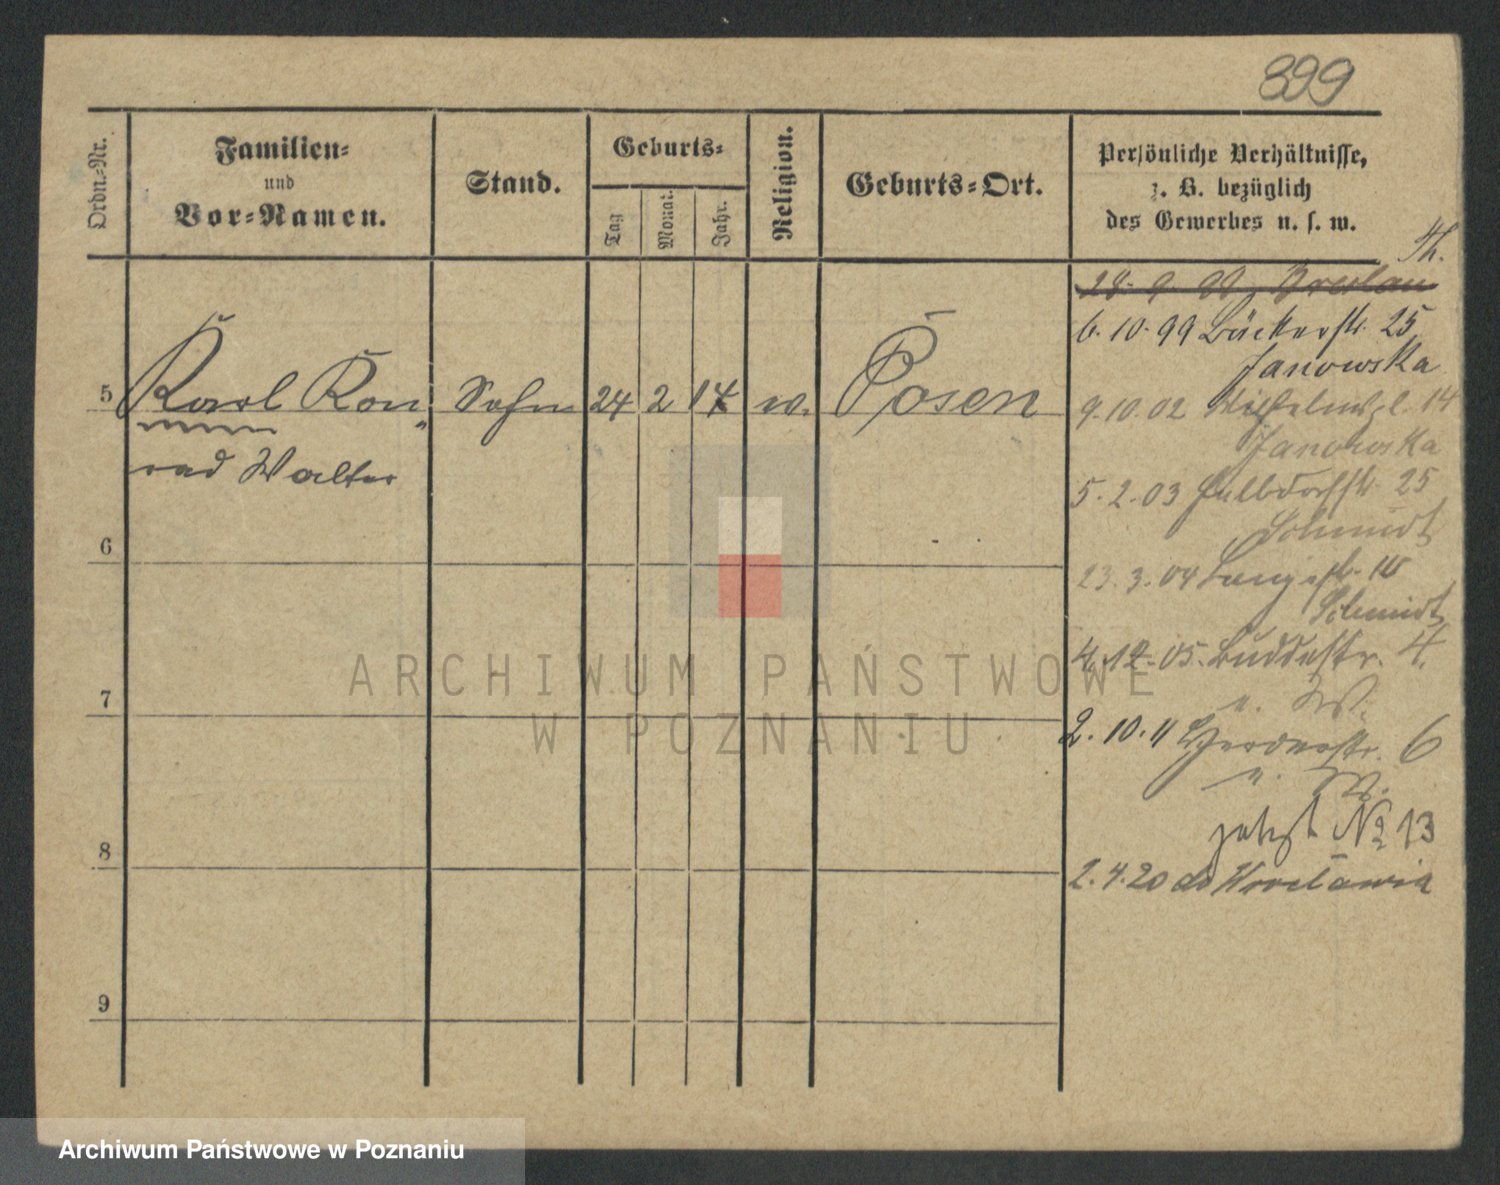 899
Ordn.-Nr.
Familien-
und
Vor-Namen.
Stand.
Geburts-
Tag
Monat.
Jahr.
Religion.
Geburts-Ort.
Persönliche Verhältnisse,
z. B. bezüglich
des Gewerbes u. s. w.
Breslau
6. 10. 99 Bäckerstr. 25
Janowska
5 Karl Kon Sohn 24 2 14 Posen
rad Walter
9. 10. 02 14
Janowska
5. 2. 03 25
Schmidt
6
23. 3. 04 Langestr.
Schmidt
4. 12. 05. Buddestr. 4.
u. W.
7
2. 10. 11 6
u. W.
jetzt No 13
8
2. 4. 20 do Wrocławia
9
ARCHIWUM PAŃSTWOWE
W POZNANIU
Archiwum Państwowe w Poznaniu